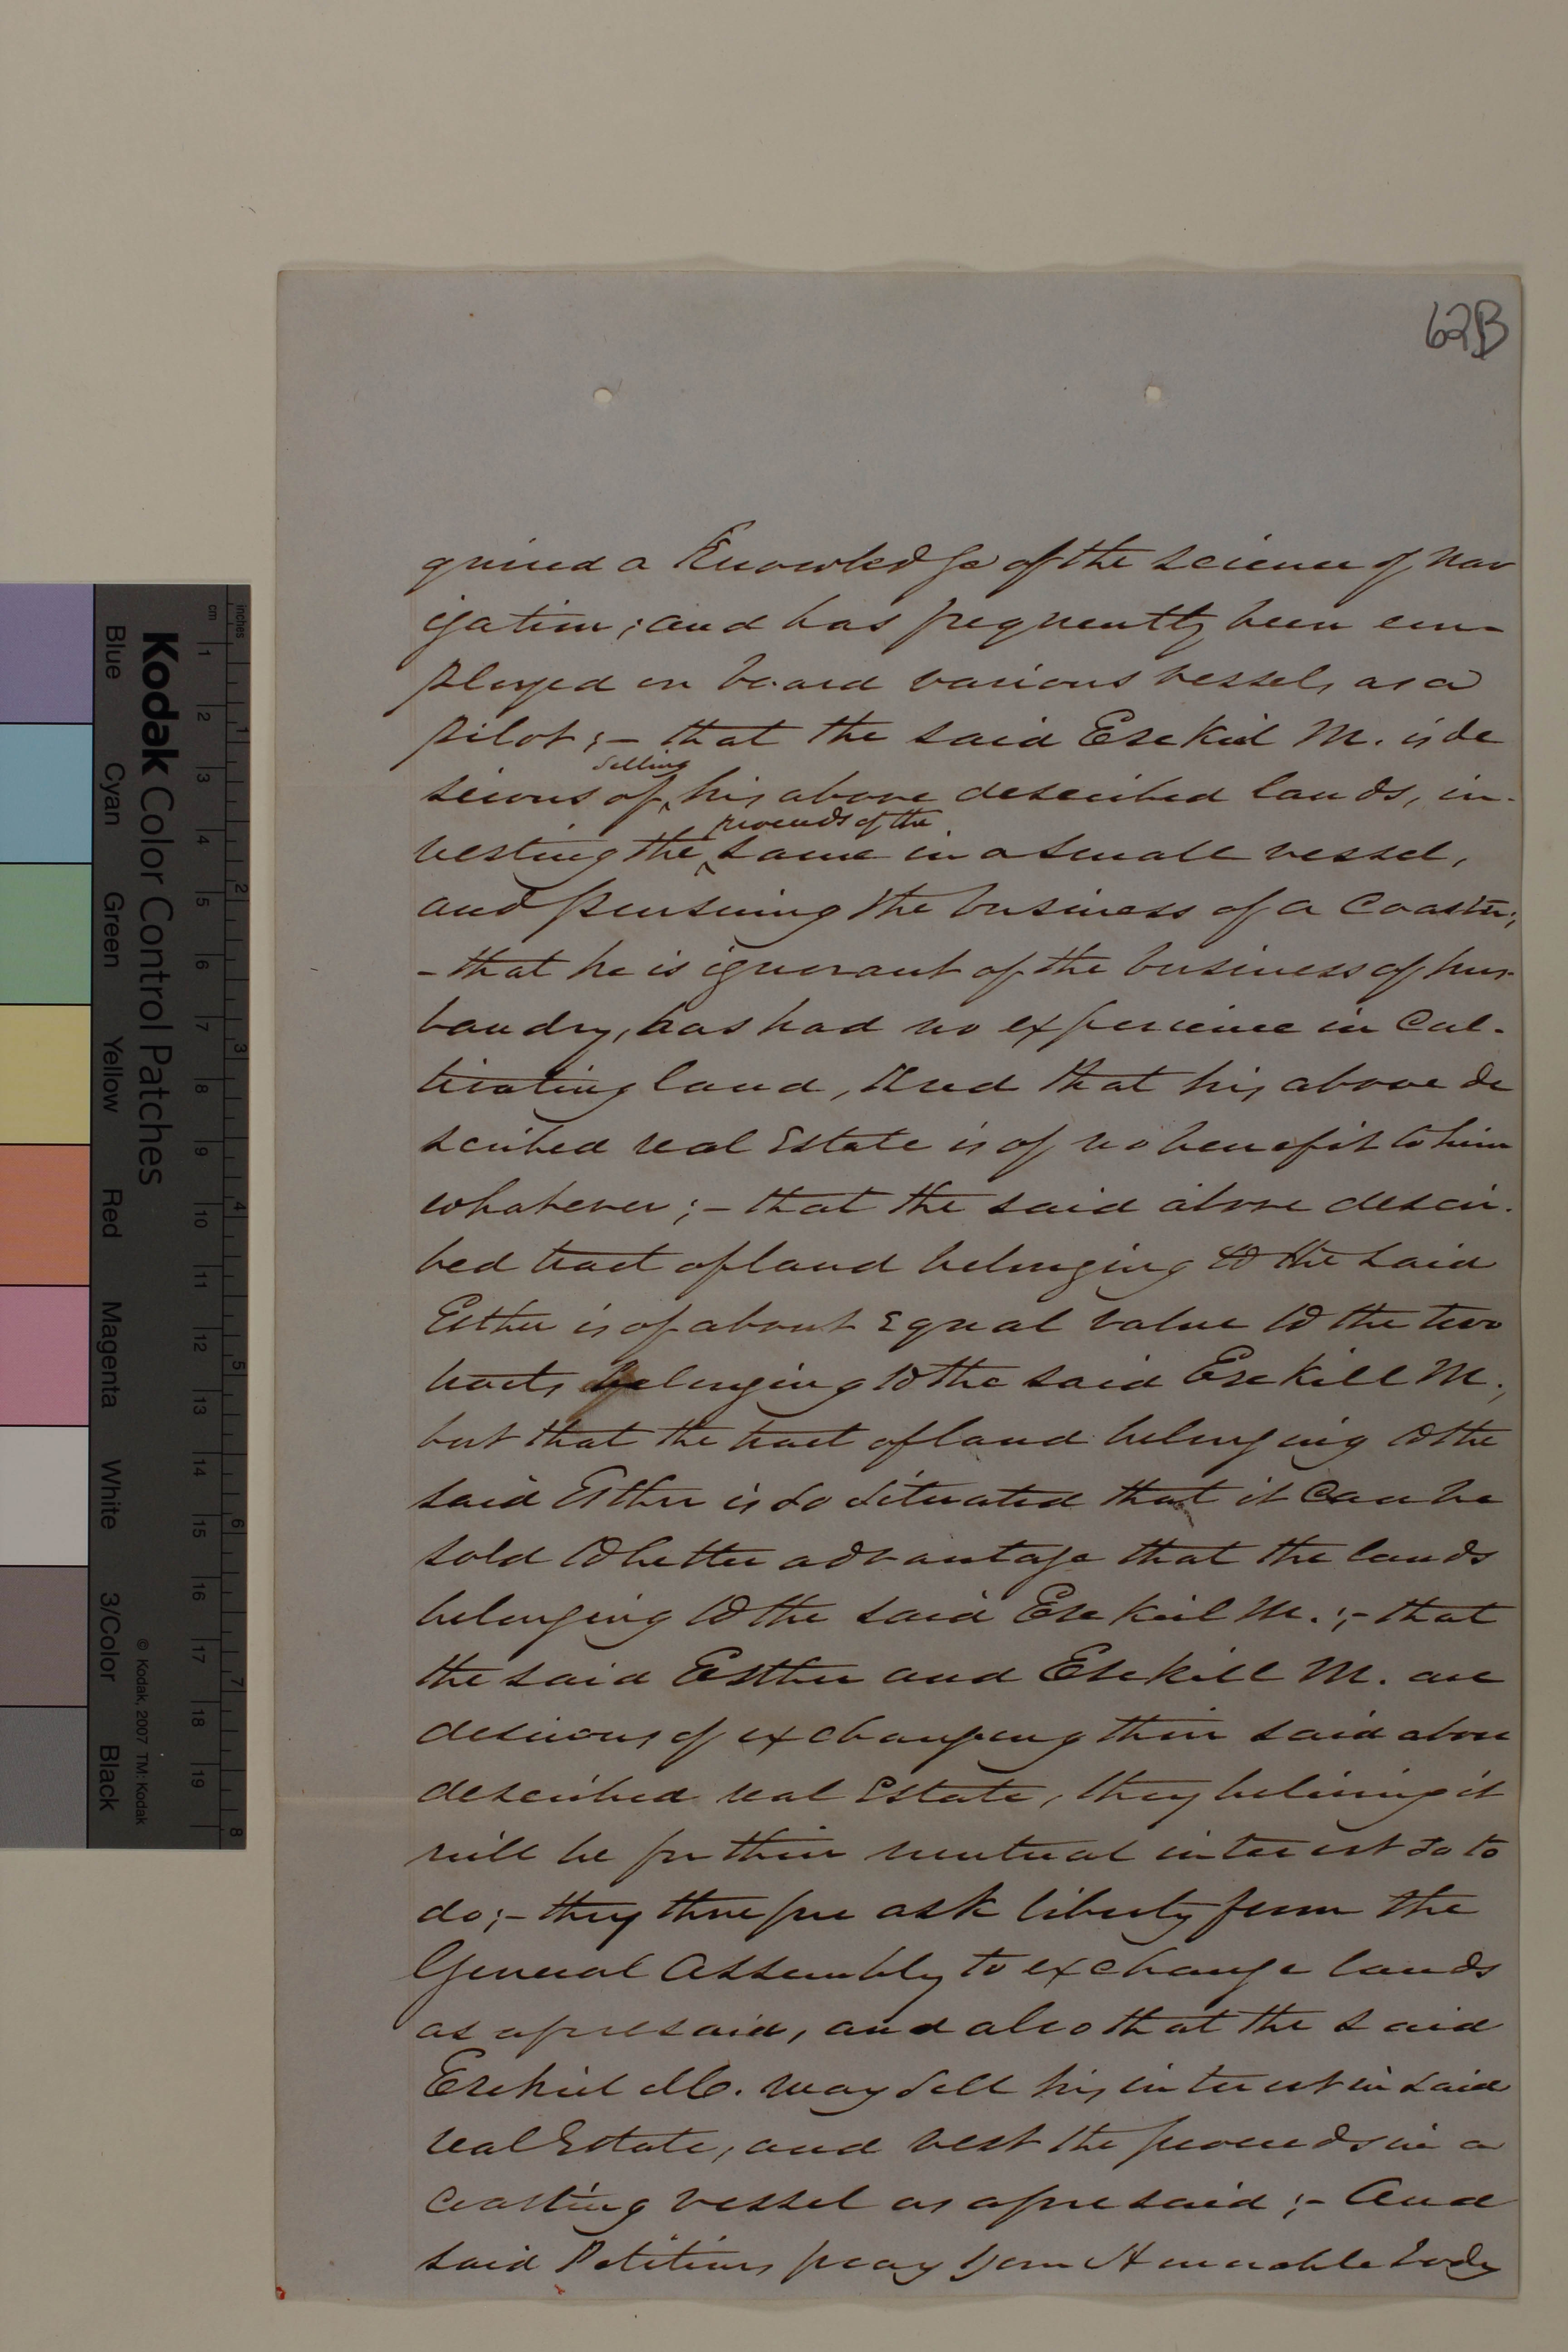 62B
quired a Knowledge of the science of nav
igation; and has frequently been em-
ployed on board various vessels as a
pilot;- that the said Esekiel M. is de
selling
sirous of ‸ his above described lands, in-
proceeds of the
vesting the ‸ same in a small vessel,
and pursuing the business of a Coaster;
- that he is ignorant of the business of hus-
bandry, has had no experience in Cul-
tivating land, And that his above de
scribed real Estate is of no benefit to him
whatever; - that the said above descri-
bed tract of land belonging to the said
Esther is of about Equal value to the two
tracts belonging to the said Esekiell M.,
but that the tract of land belonging to the
said Esther is so situated that it Can be
sold to better advantage that the lands
belonging to the said Esekiel M.;- that
the said Esther and Esekiell M. are
desirous of exchanging their said above
described real Estate, they believing it
will be for their mutual interest so to
do;- they therefore ask liberty from the
General Assembly to exchange lands
as aforesaid, and also that the said
Esekiel M. may sell his interest in said
real Estate, and vest the proceeds in a
coasting vessel as aforesaid;- And
said Petitions pray your Honorable body
inches
cm
1 2 3 4 5 6 7 8 9 10 11 12 13 14 15 16 17 18 19
1 2 3 4 5 6 7 8
Kodak Color Control Patches
© Kodak, 2007 TM: Kodak
Blue
Cyan
Green
Yellow
Red
Magenta
White
3/Color
Black